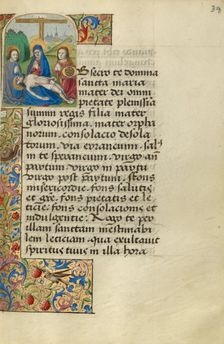 39
Obsecro te domina
sancta maria
mater dei omni
pietate plenissia
summi regis filia mater
gloriosissima. mater orpha
norum. consolacio desola
torum. via errancium. sal9
in te sperancium. virgo an
partum. virgo in partu
virgo post partum. stons
misericordie. fons salutis
et gre. fons pietatis et le
ticie. fons consolacionis et
indulgentie. Rogo te pro
illam sanctam inestimabi
lem leticiam. qua exultauit
spiritus tuus in illa hora